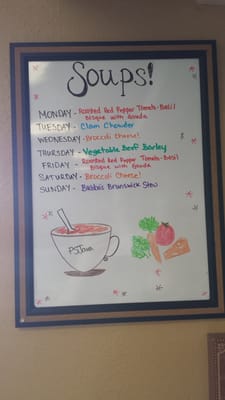 Soups!
MONDAY - Roasted Red Pepper Tomato-Basil
Bisque with Gouda
TUESDAY - Clam Chowder
WEDNESDAY - Broccoli Cheese!
THURSDAY - Vegetable Beef Barley
FRIDAY - Roasted Red Pepper Tomato-Basil
Bisque with Gouda
SATURDAY - Broccoli Cheese!
SUNDAY - Bubba's Brunswick Stew